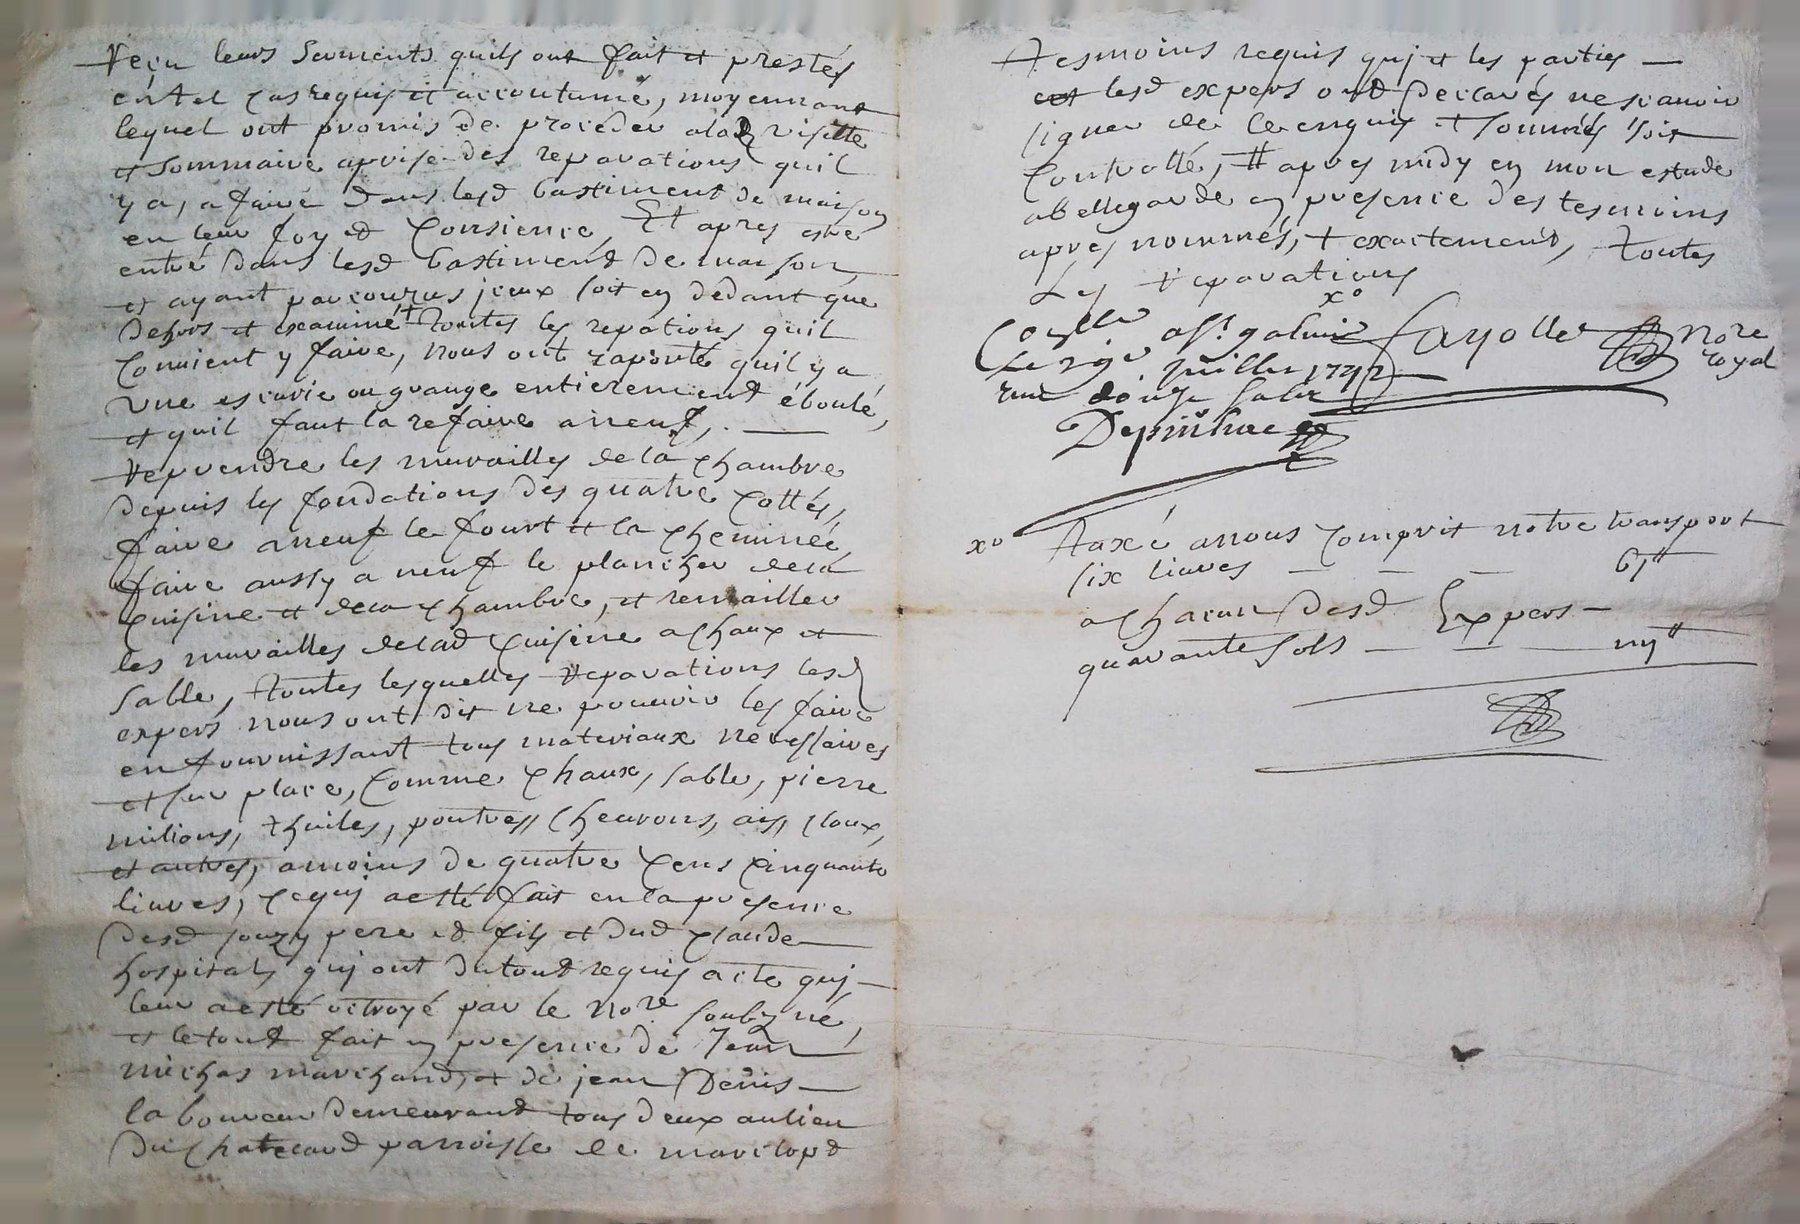 Reçu leurs serments quils ont fait et prestés
en tel cas requis et accoutumé, moyennant
lequel ont promis de proceder a lad visitte
et sommaire aprise des reparations quil
y a, a faire dans lesd bastiment de maison
en leur foy et Consience, Et apres estre
entré dans lesd bastiment de maison,
et ayant parcourus jceux soit en dedant que
dehors et examiné + toutes les repations quil
Convient y faire, nous ont raporté quil y a
une escurie ou grange entierement éboulé,
et quil faut la refaire aneuf, .
reprendre les murailles de la Chambre
depuis les fondations des quatre Cottés,
faire aneuf le fourt et la Cheminée,
faire aussy a neuf le plancher de la
Cuisine et de la Chambre, et remailler
les murailles de lad Cuisine a Chaux et
sable, toutes lesquelles reparations lesd
expers nous ont dit ne pouvoir les faire
en fournissant tous materiaux necessaires
et sur place, Comme Chaux, sable, pierre
milions, thuiles, poutres, Cheurons, ais, Cloux,
et autres, amoins de quatre Cens Cinquante
liures, Ce quj a esté fait en la presence
desd souzy pere et fils et dud Claude
hospital, quj ont du tout requis acte quj
leur a esté octroyé par le Nore soubzné,
et le tout fait en presence de Jean
michas marchand, et de jean Denis
laboureur demeurant tous deux au lieu
du Chatelard parroisse de marclopt
Tesmoins requis quj et les parties
lesd expers ont declarés ne scauoir
signer de Ce enquis et sommés soit
Controllé, # apres midy en mon estude
a bellegarde en presence des tesmoins
apres nommés, + exactement, toutes
Les reparations
xo
Coellé a St galmier Fayolle Nore
Le juillet 1742 royal
reçu douze sols
Depinhac
xo Taxé a nous Comprit notre transport
six liures 6₶
a Chacun desd Expers
quarante sols iiij₶